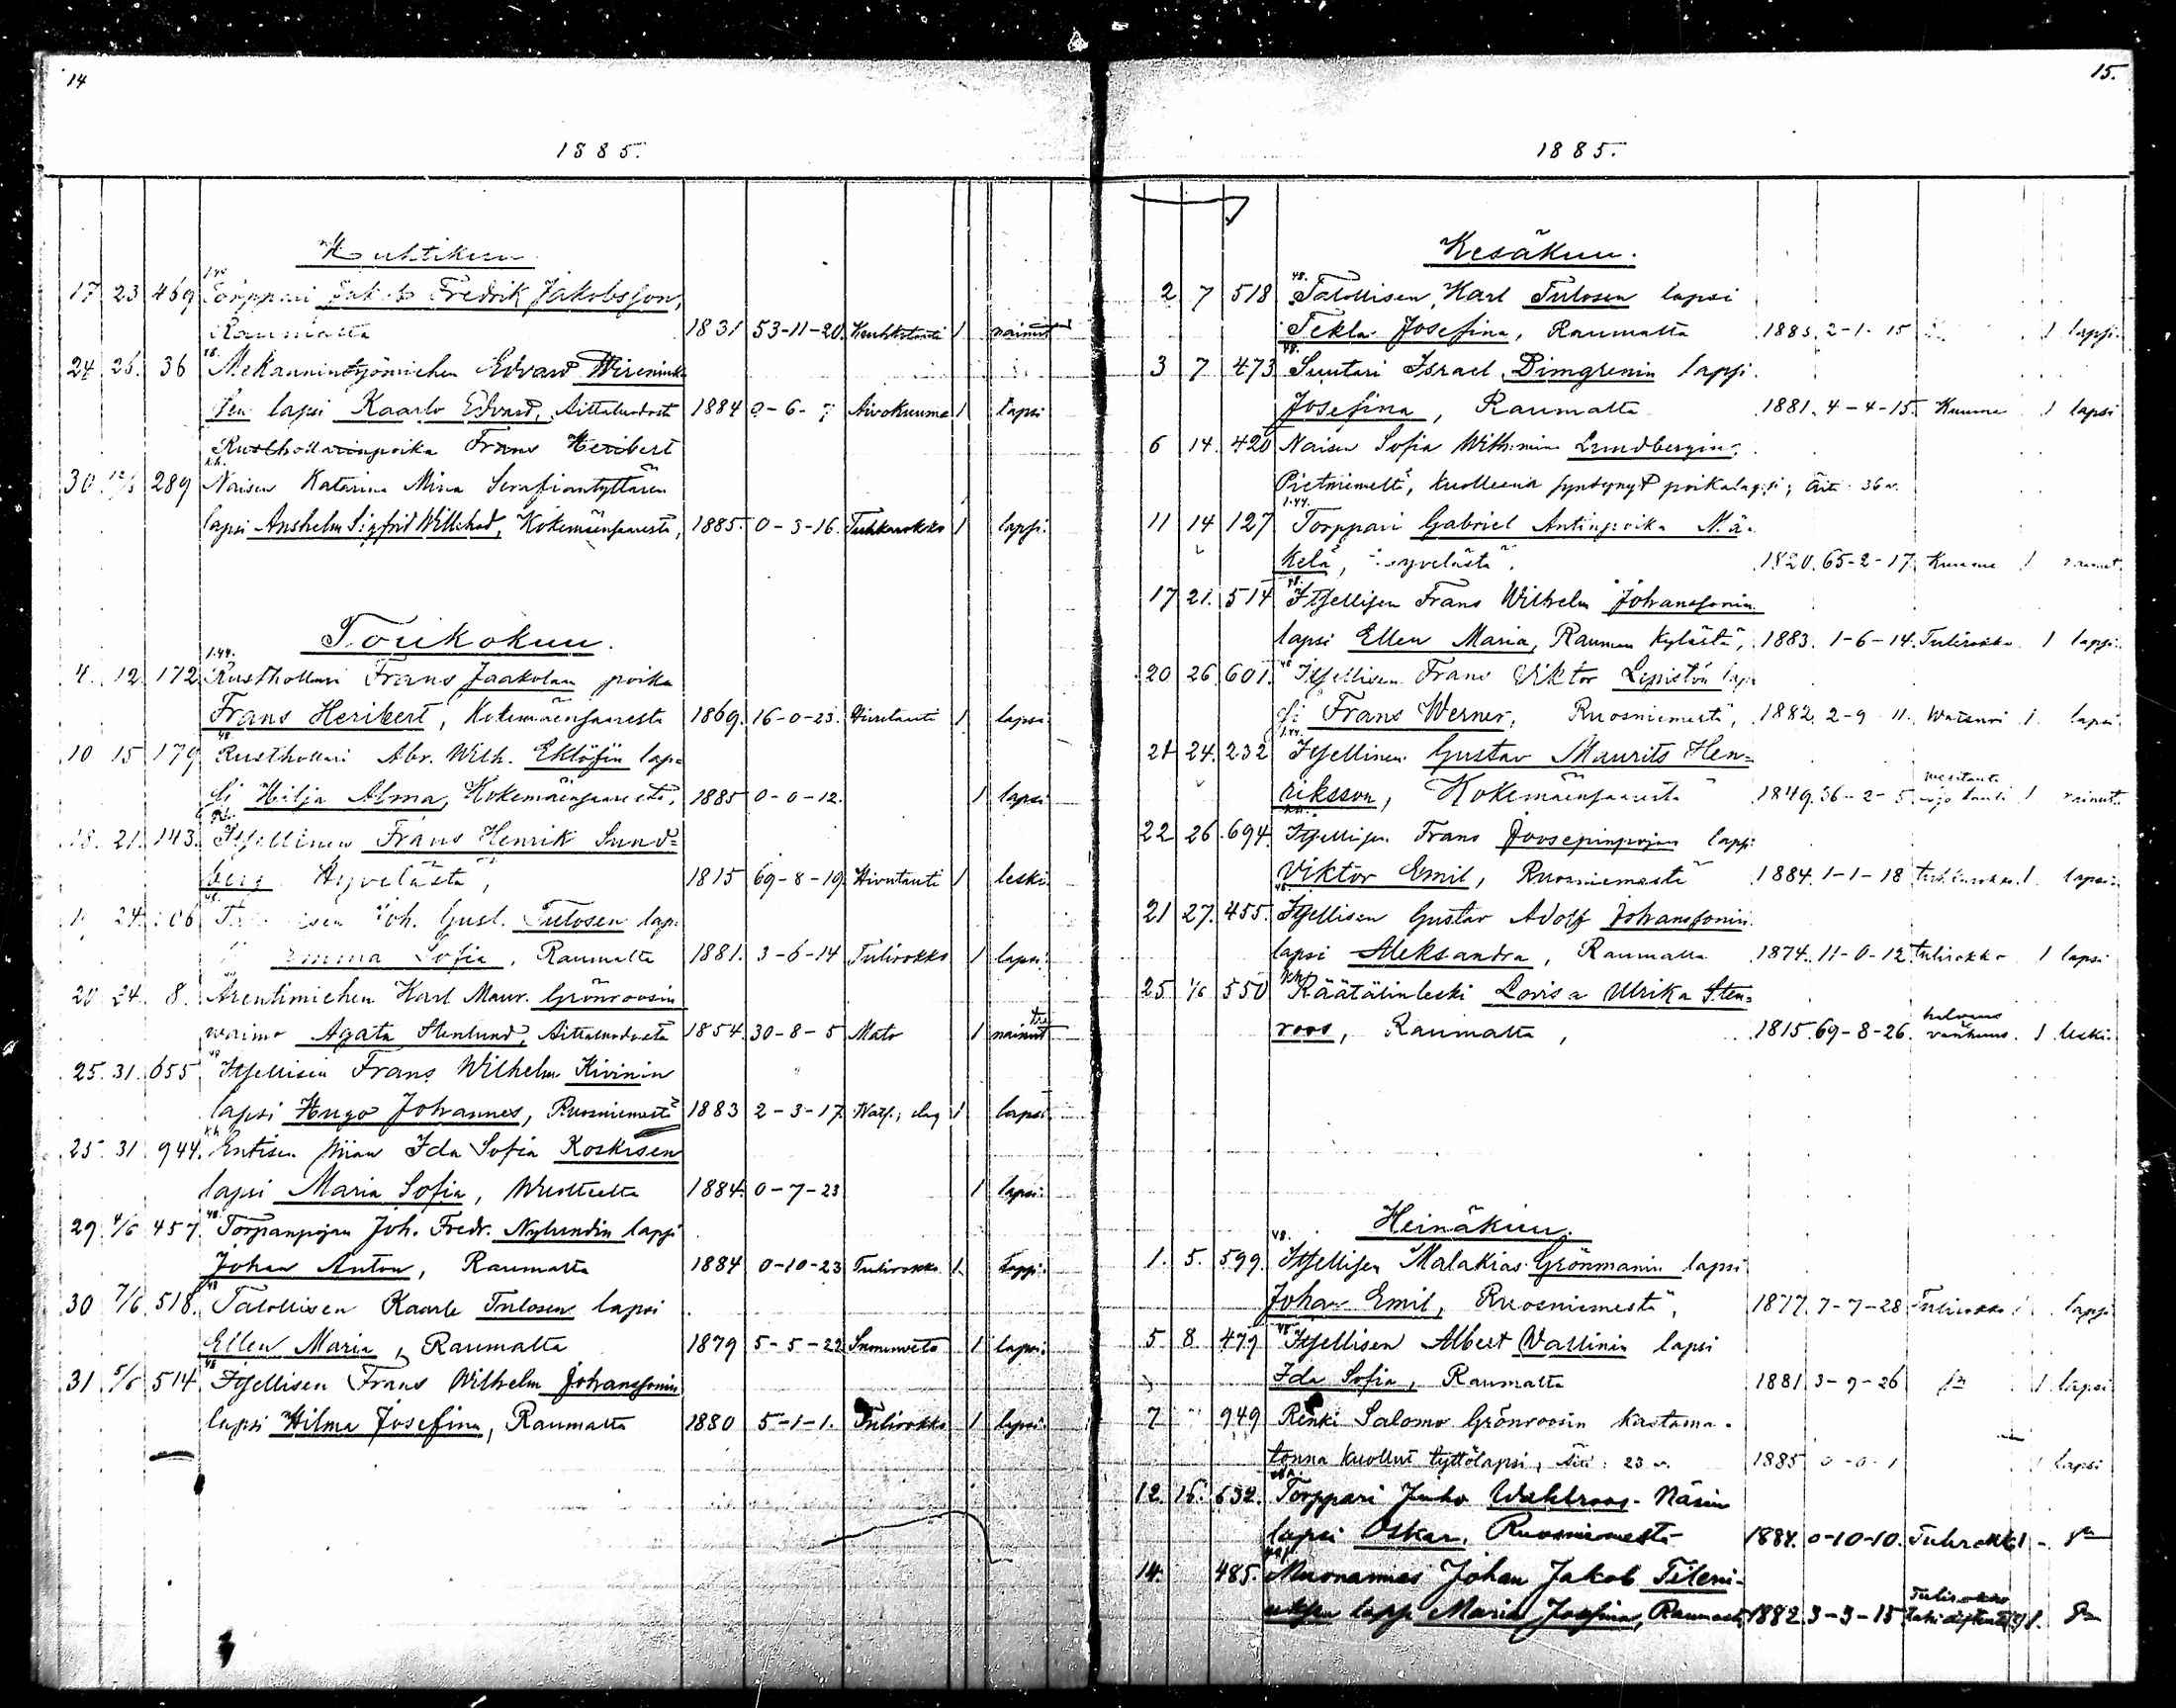 14
1885.
Huhtikuu
17 23 469 Torppari Jakob Fredrik Jakobsson,
Raumalta 1831 53-11-20. Keuhkotauti 1 nainut
24 26. 36 Edvard
sen lapsi Kaarlo Edvard, Aittaluodosta 1884 0-6-7 Aivokuume 1 lapsi
Rusthollarinpoika Frans Heribert
30 12/5 289 Naisen Katarina Miina Serafiantyttären
lapsi Anshelm Sigfrid Willehad, Kokemäensaaresta, 1885. 0-3-16. Tuhkarokko 1 lapsi.
Toukokuu.
4. 12 172 Rusthollari Frans Jaakolan poika
Frans Heribert, Kokemäensaaresta 1869. 16-0-23. 1 lapsi
10 15 179 Rusthollari Abr. Wilh. Eklöfin lap=
si Hilja Alma, Kokemäensaaresta, 1885 0-0-12. 1 lapsi
18. 21. 143. Itsellinen Frans Henrik Sund=
berg Hyvelästä, 1815 69-8-19. Hivutauti 1 leski.
24. Joh. Gust. Tulosen lap=
Emma Sofia, Raumalta 1881. 3-6-14 Tulirokko 1 lapsi.
20 24. 8. Arentimiehen Karl Maur. Grönroosin
waimo Agata Stenlund, Aittaluodosta 1854. 30-8-5 Mato 1 nainut
25. 31. 655 Itsellisen Frans Wilhelm Kivinin
lapsi Hugo Johannes, Ruosniemestä 1883 2-3-17. 1 lapsi.
25. 31. 944. Entisen piian Ida Sofia Koskisen
lapsi Maria Sofia, 1884. 0-7-23 1 lapsi.
29. 4/6 457. Torpanpojan Joh. Fredr. Nylundin lapsi
Johan Anton, Raumalta 1884 0-10-23 Tulirokko 1. lapsi.
30 7/6 518. Talollisen Kaarle Tulosen lapsi
Ellen Maria, Raumalta 1879 5-5-22 1 lapsi.
31 5/6 514 Itsellisen Frans Wilhelm Johanssonin
lapsi Hilma Josefina, Raumalta 1880 5-1-1. Tulirokko 1 lapsi.
15.
1885.
Kesäkuu.
2 7 518 Talollisen, Karl Tulosen lapsi
Tekla Josefina, Raumalta 1883. 2-1-15 1 lapsi.
3 7 473 Suutari Israel Dimgrenin lapsi.
Josefina, Raumalta 1881. 4-4-15. Kuume 1 lapsi
6 14. 420 Naisen Sofia Wilhmin Lundbergin,
kuolleena syntynyt poikalapsi; Äiti 36 v.
11 14 127 Torppari Gabriel Antinpoika Mä=
kelä, Hyvelästä. 1820. 65-2-17. Kuume 1 nainut.
17 21. 514 Itsellisen Frans Wilhelm Johanssonin
lapsi Ellen Maria, Rauman kylästä, 1883. 1-6-14. Tulirokko. 1 lapsi.
20 26. 601. Itsellisen Frans Viktor Lepistön lap=
si Frans Werner, Ruosniemestä, 1882. 2-9-11. Watsuri 1. lapsi.
21 24. 232 Itsellinen Gustav Maurits Hen=
riksson, Kokemäensaaresta 1849. 36-2-5 1 nainut.
22 26. 694. Itsellisen Frans Joosepinpojan lapsi
Viktor Emil, Ruosniemestä 1884. 1-1-18 tuhkarokko. 1. lapsi.
21 27. 455. Itsellisen Gustav Adolf Johanssonin.
lapsi Aleksandra, Raumalta 1874. 11-0-12. tulirokko 1 lapsi
25 1/6 550 Räätälinleski Lovisa Ulrika Sten=
roos, Raumalta, 1815. 69-8-26. vanhuus. 1 leski.
Heinäkuu.
1. 5. 599. Itsellisen Malakias Grönmanin lapsi
Johan Emil, Ruosniemestä, 1877. 7-7-28 Tulirokko 1 lapsi
5 8. 479 Itsellisen Albert Wallinin lapsi
Ida Sofia, Raumalta 1881 3-9-26 1 lapsi
7 949 Renki Salomo Grönroosin kastama-
tonna kuollut tyttölapsi, Äiti: 23 v. 1885 0-0-1 1 lapsi
12. 16. 632. Torppari Juho Wahlroos-Näsin
lapsi Oskar, Ruosniemestä 1884. 0-10-10. Tulirokko 1
14. 485. Muonamies Johan Jakob
lapsi Maria Josefina, Raumalta 1882. 3-3-15 Tulirokko